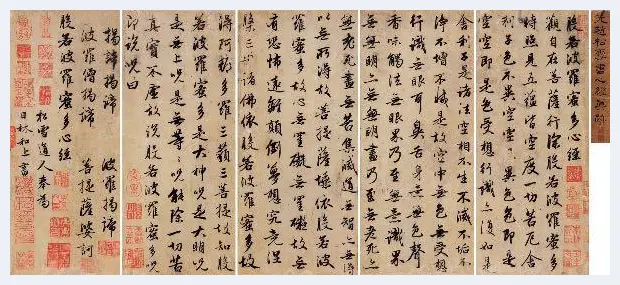 般若波羅蜜多心經
觀自在菩薩行深般若波羅蜜多
時照見五蘊皆空度一切苦厄舍
利子色不異空空不異色色即是
空空即是色受想行識亦復如是
舍利子是諸法空相不生不滅不垢不
淨不增不減是故空中無色無受想
行識無眼耳鼻舌身意無色聲
香味觸法無眼界乃至無意識界
無無明亦無無明盡乃至無老死亦
無老死盡無苦集滅道無智亦無得
以無所得故菩提薩埵依般若波
羅蜜多故心無罣礙無罣礙故無
有恐怖遠離顛倒夢想究竟涅
槃三世諸佛依般若波羅蜜多故
得阿耨多羅三藐三菩提故知般
若波羅蜜多是大神呪是大明呪
是無上呪是無等等呪能除一切苦
真實不虛故說般若波羅蜜多呪
即說呪曰
揭諦揭諦 波羅揭諦
波羅僧揭諦 菩提薩婆訶
般若波羅蜜多心經
松雪道人奉為
日林和上書